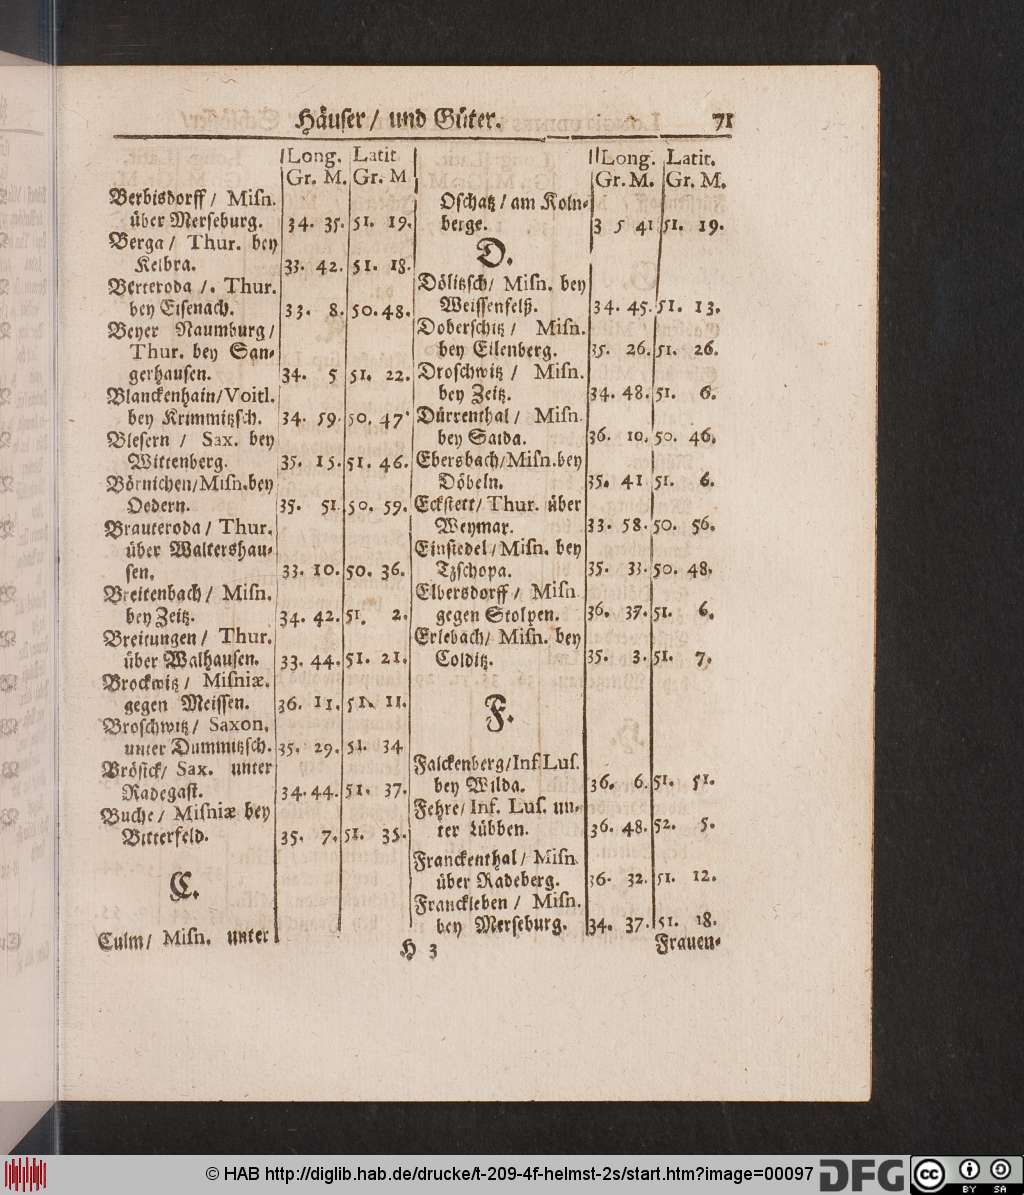 Häuser / und Güter. 71
Long. Latit
Gr. M. Gr. M
Berbisdorff / Misn.
über Merseburg. 34. 35. 51. 19.
Berga / Thur. bey
Kelbra. 33. 42. 51. 18.
Berteroda /. Thur.
bey Eisenach. 33. 8. 50. 48.
Beyer Naumburg /
Thur. bey San-
gerhausen. 34. 5 51. 22.
Blanckenhain/Voitl.
bey Krimmitzsch. 34. 59. 50. 47
Blesern / Sax. bey
Wittenberg. 35. 15. 51. 46.
Börnichen/Misn.bey
Oedern. 35. 51. 50. 59.
Brauteroda / Thur.
über Waltershau-
sen. 33. 10. 50. 36.
Breitenbach / Misn.
bey Zeitz. 34. 42. 51. 2.
Breitungen / Thur.
über Walhausen. 33. 44. 51. 21.
Brockwitz / Misniæ.
gegen Meissen. 36. 11. 51. 11.
Broschwitz / Saxon.
unter Dummitzsch. 35. 29. 51. 34
Brösick/ Sax. unter
Radegast. 34. 44. 51. 37.
Buche / Misniæ bey
Bitterfeld. 35. 7. 51. 35.
C.
Culm/ Misn. unter
Long. Latit.
Gr. M. Gr. M.
Oschatz / am Koln-
berge. 3 5 41 51. 19.
D.
Dölitzsch/ Misn. bey
Weissenfelß. 34. 45. 51. 13.
Doberschitz / Misn.
bey Eilenberg. 35. 26. 51. 26.
Droschwitz / Misn.
bey Zeitz. 34. 48. 51. 6.
Dürrenthal / Misn.
bey Saida. 36. 10. 50. 46.
Ebersbach/Misn.bey
Döbeln. 35. 41 51. 6.
Eckstett/ Thur. über
Weymar. 33. 58. 50. 56.
Einsiedel / Misn. bey
Tzschopa. 35. 33. 50. 48.
Elbersdorff / Misn.
gegen Stolpen. 36. 37. 51. 6.
Erlebach/ Misn. bey
Colditz. 35. 3. 51. 7.
F.
Falckenberg/Inf.Lus.
bey Wilda. 36. 6. 51. 51.
Fehre/ Inf. Lus. un-
ter Lübben. 36. 48. 52. 5.
Franckenthal / Misn.
über Radeberg. 36. 32. 51. 12.
Franckleben / Misn.
bey Merseburg. 34. 37. 51. 18.
H 3 Frauen-
© HAB http://diglib.hab.de/drucke/t-209-4f-helmst-2s/start.htm?image=00097 DFG cc BY SA